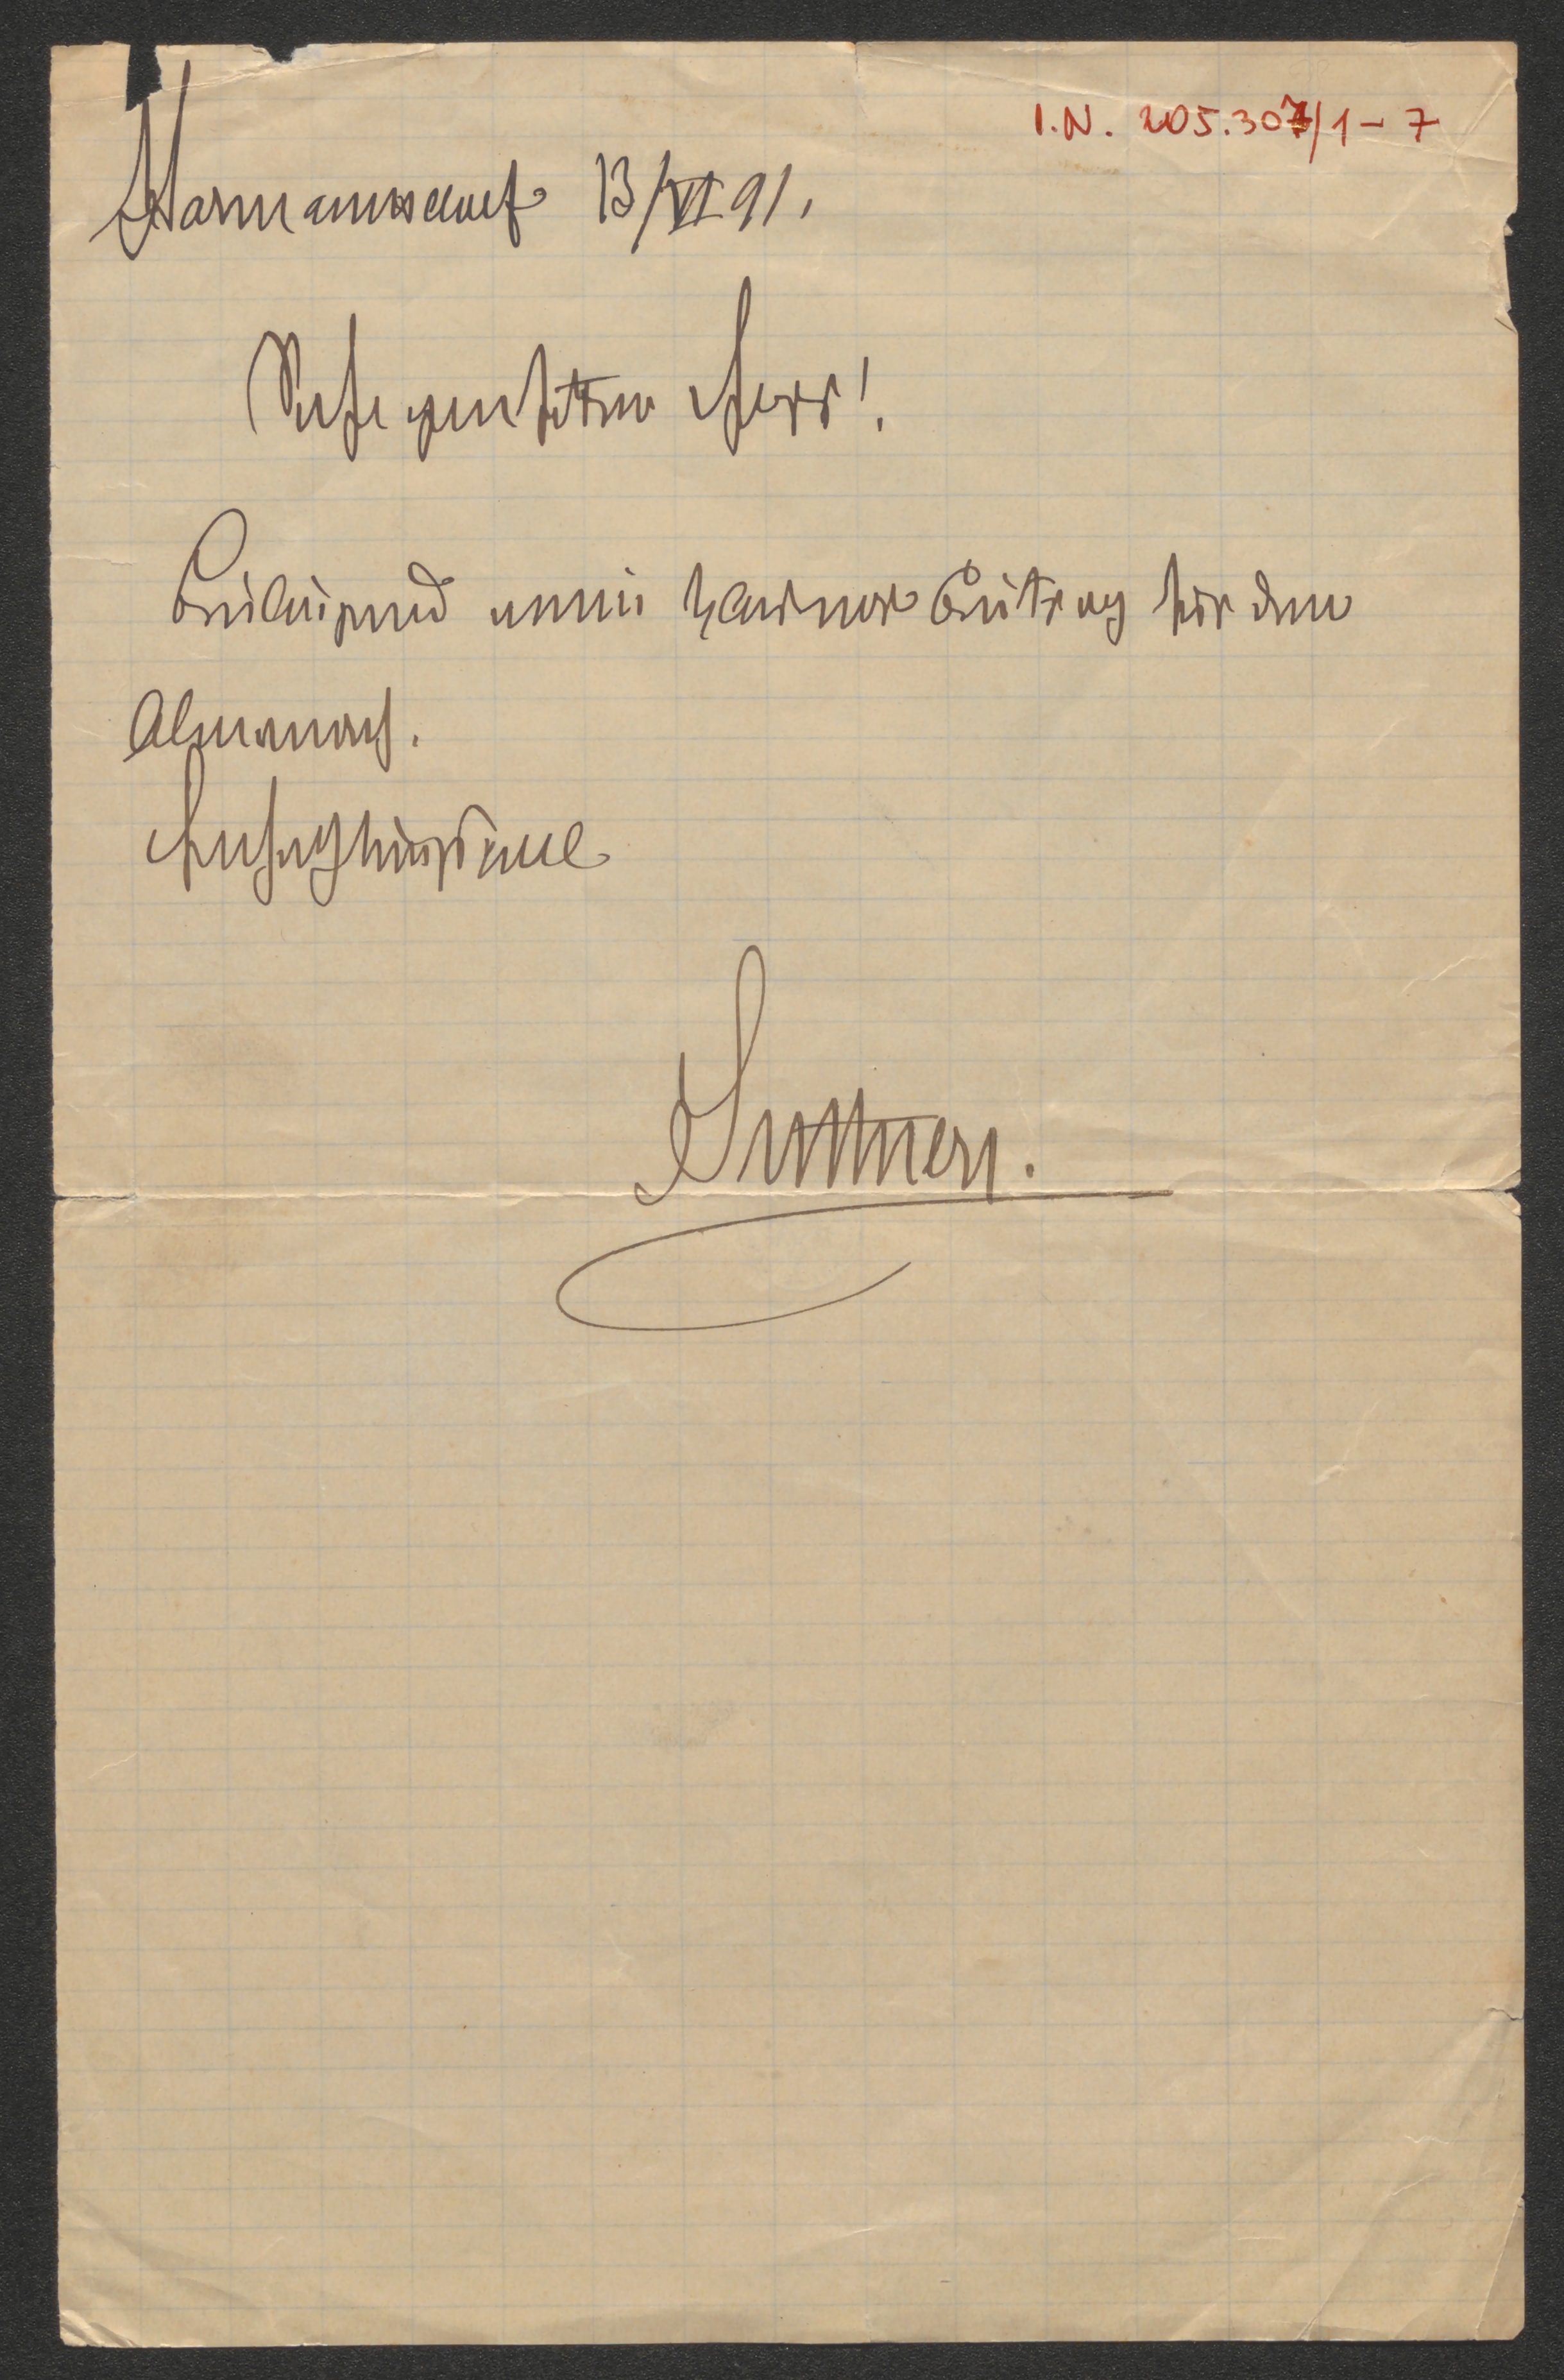 I.N. 205.307/1-7
Harmannsdorf 13/VI 91.
Sehr geehrter Herr!
Beiliegend mein kleiner Beitrag für den
Almanach.
Hochachtungsvoll
Suttner.